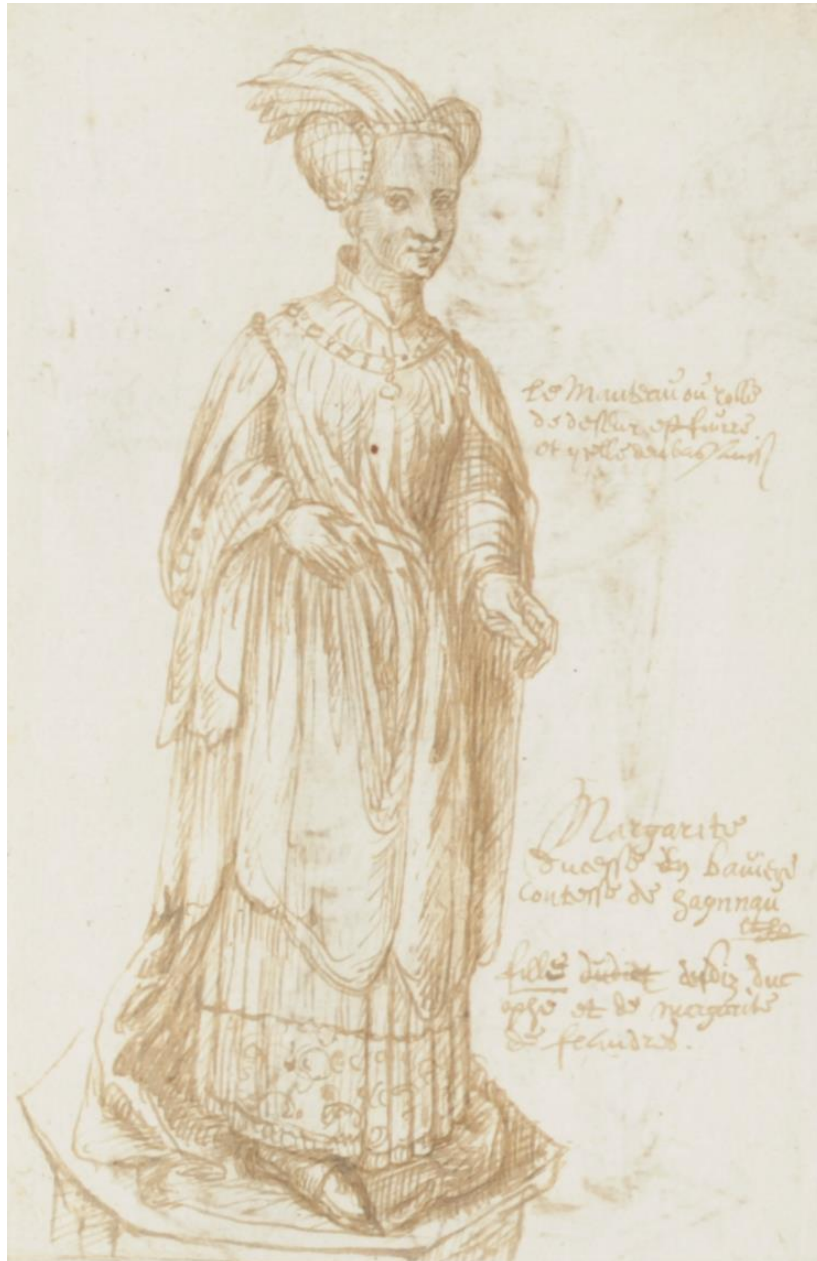 Le Manteau ou robbe
de dessur est fourre
et
Margarite
ducesse en baviere
contesse de haynnau
fille dudict desdiz duc
phe et de margarite
de flandres.